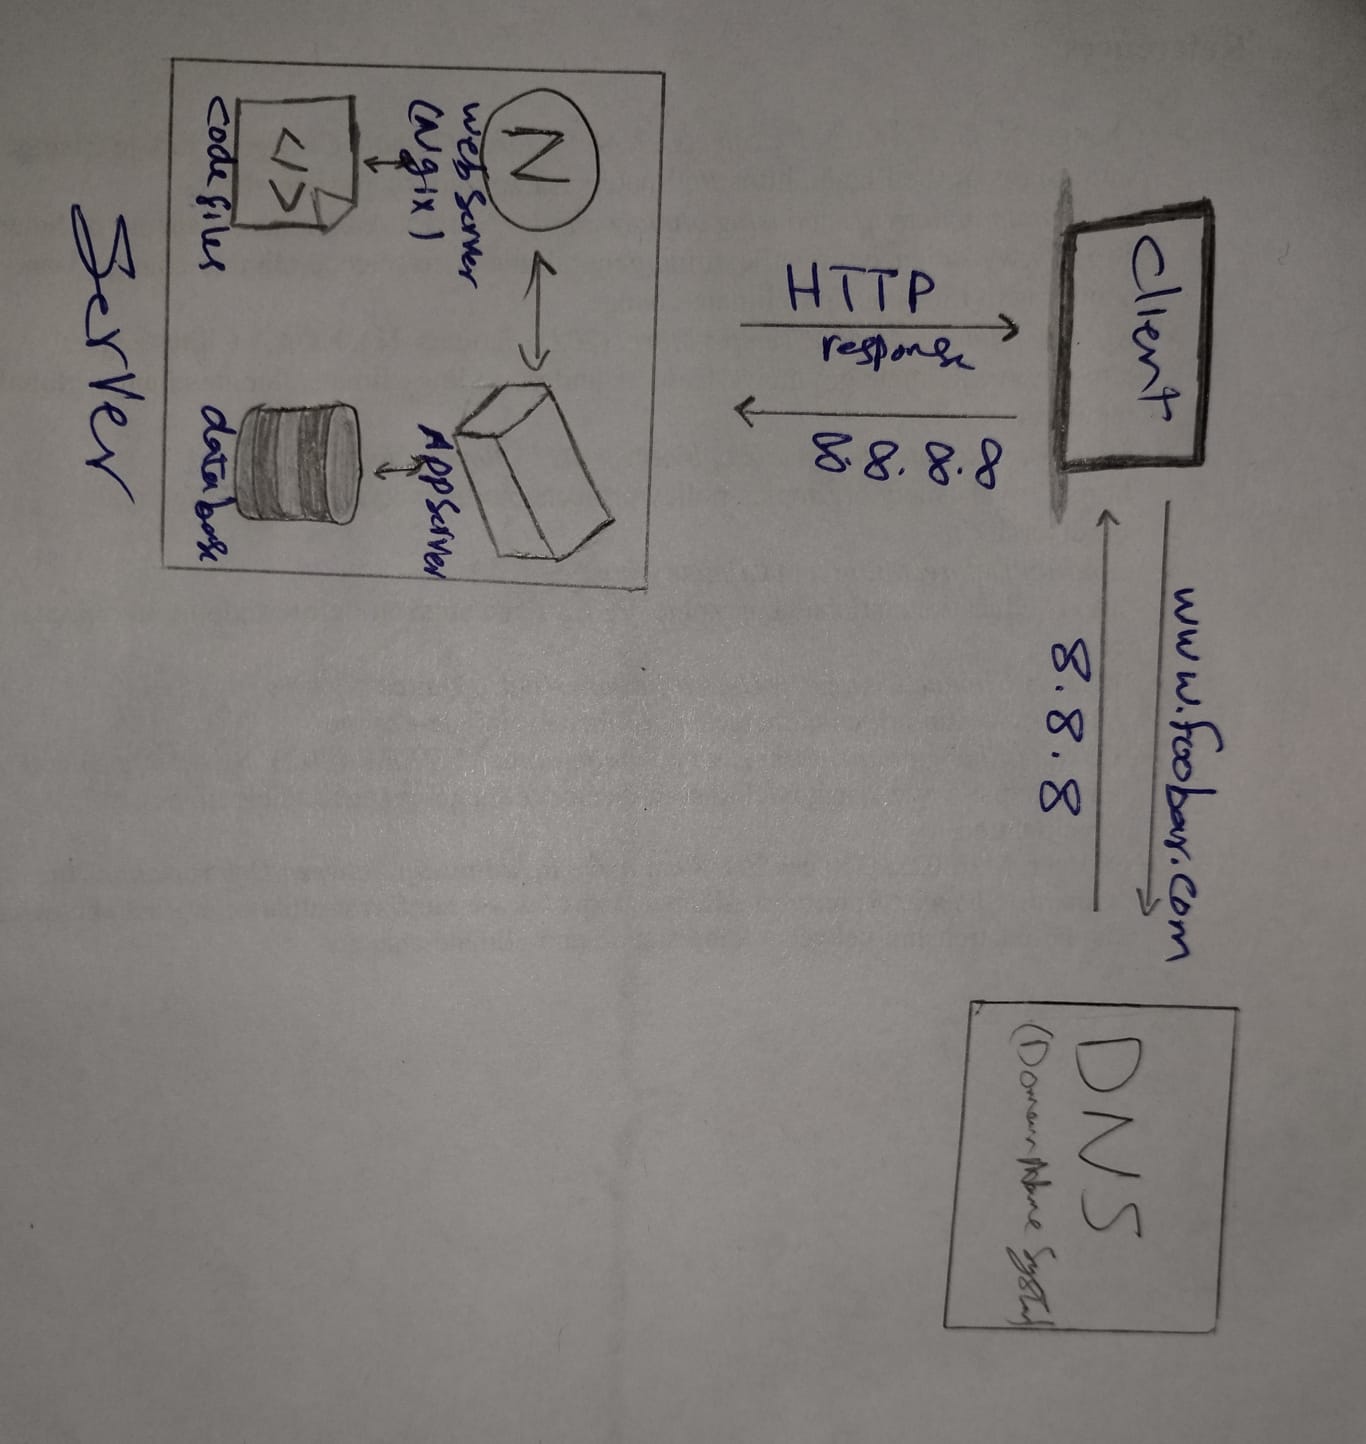 Client
www.foobar.com
8.8.8
DNS
(Domain Name System
HTTP
response
8.8.8.8
N
Web Server
(Ngix)
App Server
</>
code files
database
Server